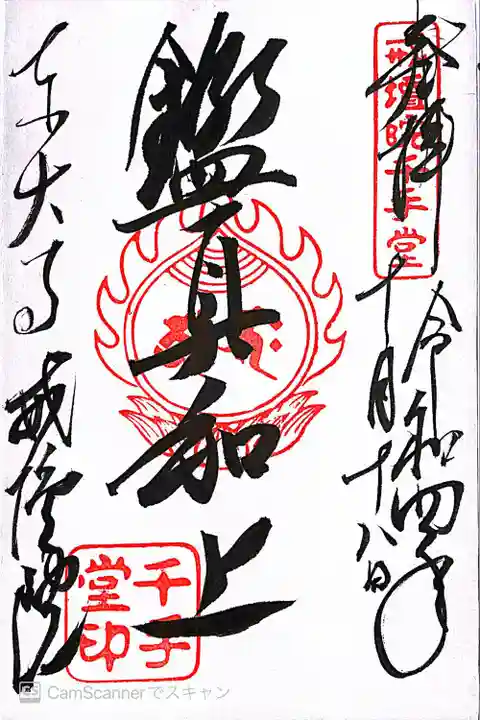 奉拝
戒壇院千手堂
令和四年
十月十八日
鑑真和上
東大寺 戒壇院
千手堂印
CS CamScannerでスキャン